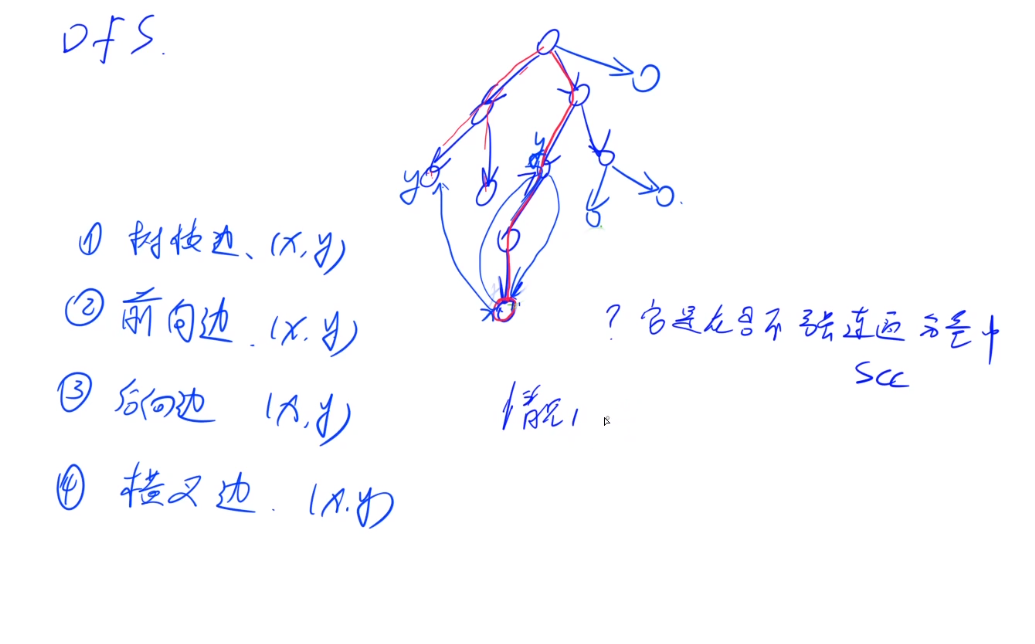 DFS.
y
y
① 树枝边、(x,y)
② 前向边.(x,y)
③ 后向边 (x,y)
④ 横叉边.(x,y)
? 它是否在 强连通分量中
SCC
情况1